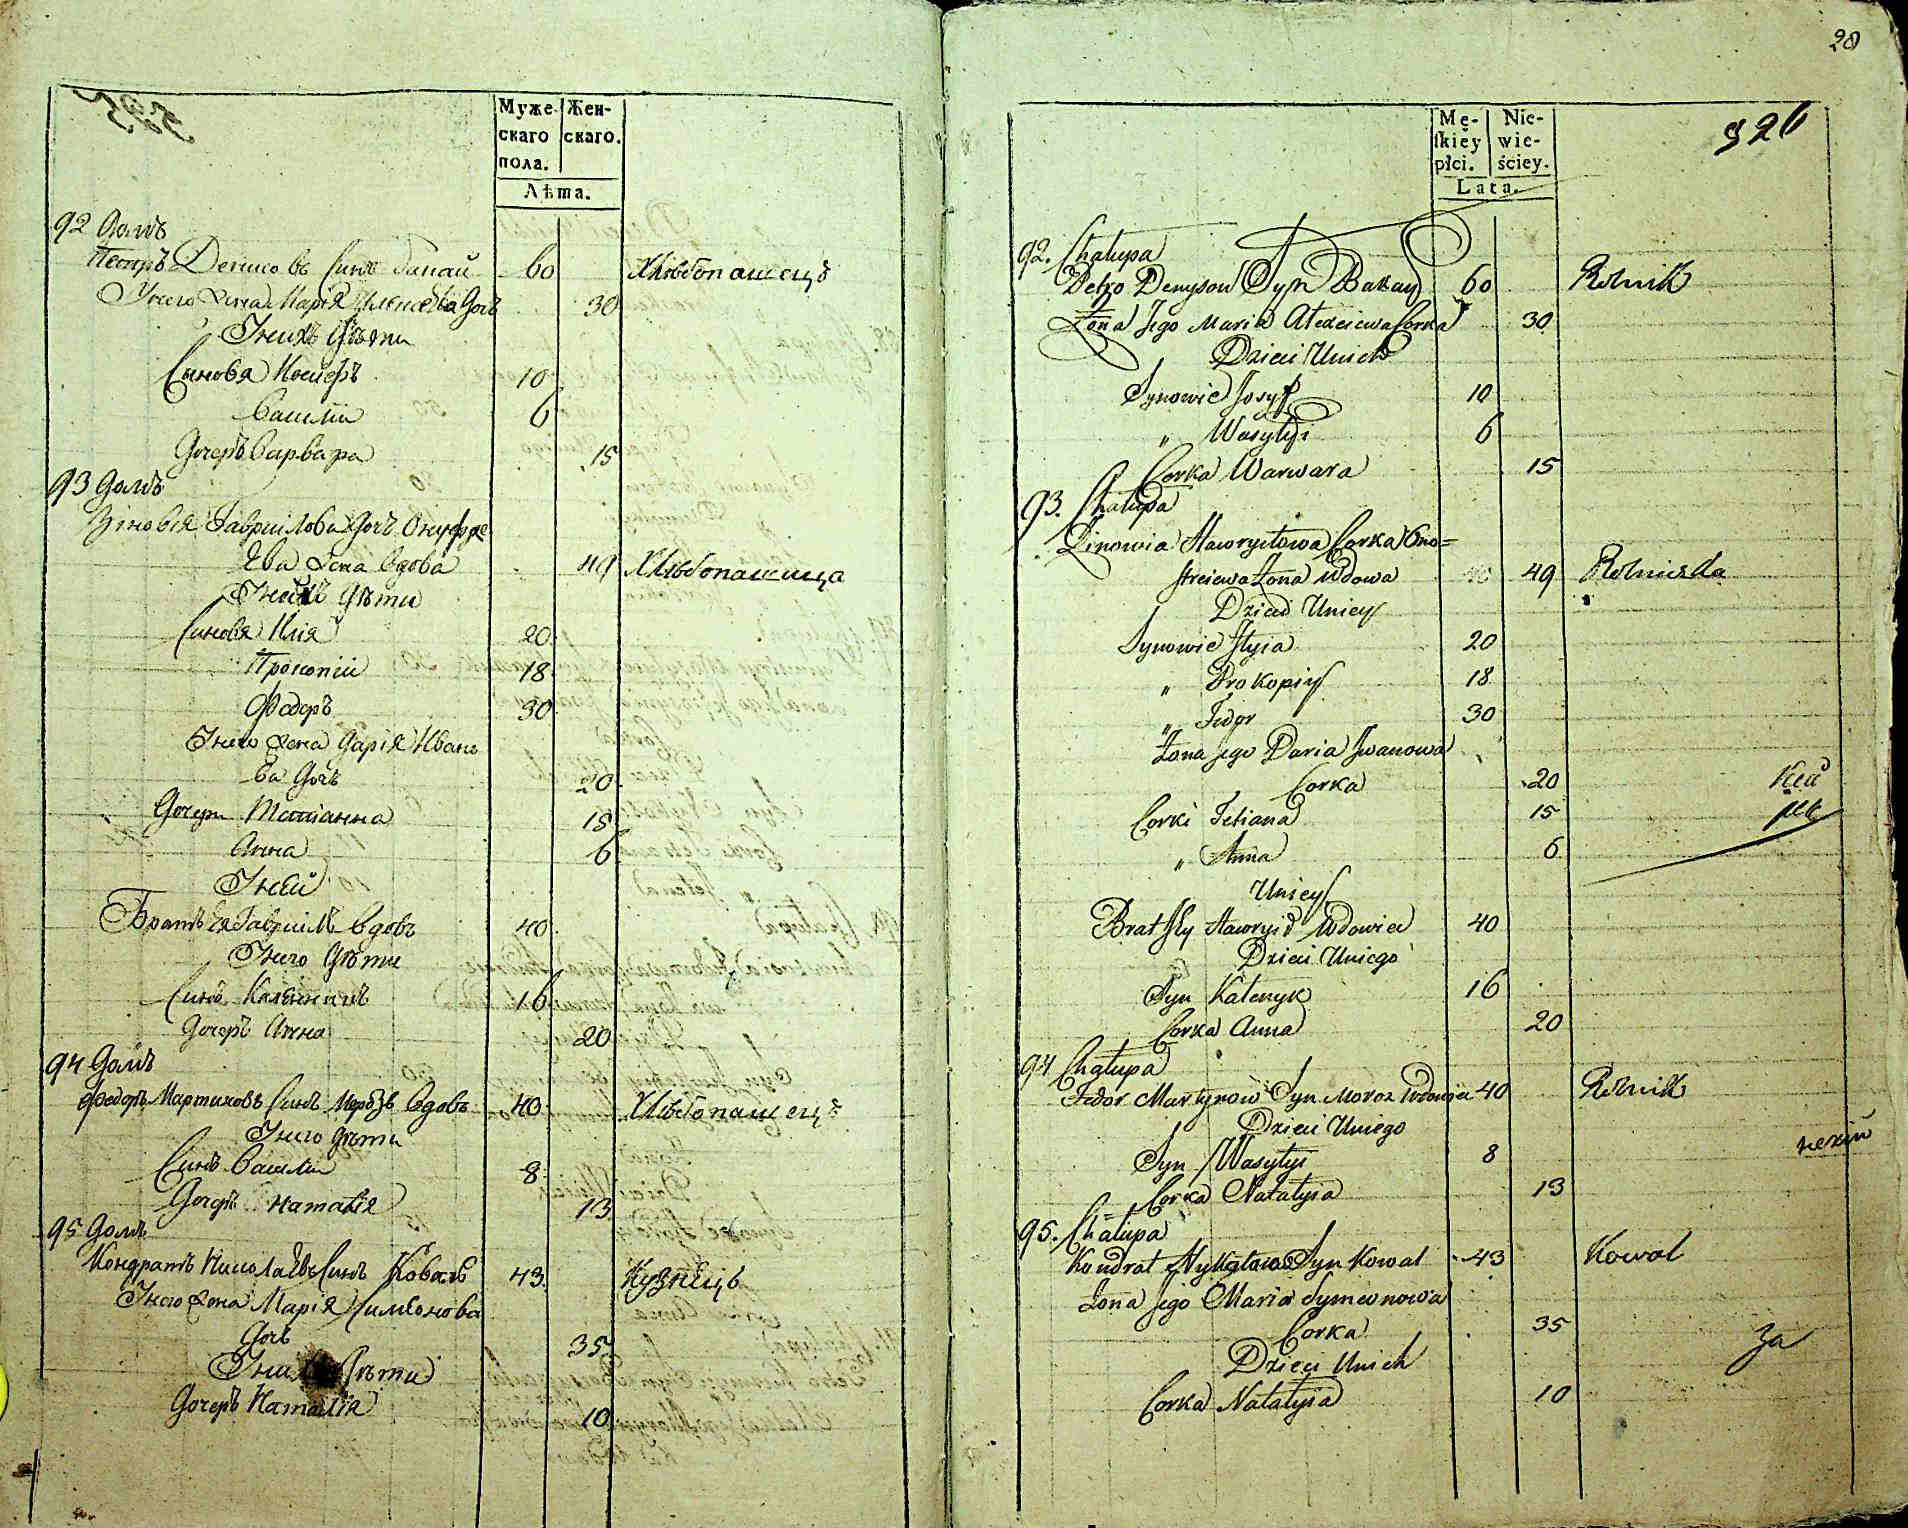 Муже-
скаго
пола.
Жен-
скаго.
Лѣта.
92 Домъ
Петръ Денисовъ Синъ Бакай 60 Хлѣбопашецъ
У него жена Марія Алексѣева Дочь 30
У нихъ Дѣти
Синовя Иосифъ 10
Василій 6
Дочеръ Варвара 15
93 Домъ
Зіновія Гавриілова Дочъ Онуфрѣ
ева жена вдова 49 Хлѣбопашица
У нейхъ Дѣти
Синовя Илія 20
Прокопій 18
Федоръ 30
У него жена Дарія Ивано
ва Дочъ 20
Дочери Татіанна 15
Анна 6
У ней
Братъ ея Гавриілъ вдовъ 40
У него Дѣти
Синъ Калѣникъ 16
Дочеръ Анна 20
94 Домъ
Федоръ Мартиновъ Синъ Морозъ вдовъ 40 Хлѣбопашецъ
У него Дѣти
Синъ Василій 8
Дочеръ Наталія 13
95 Домъ
Кондратъ Николаевъ Синъ Коваль 43 Кузнецъ
У него жена Марія Симеонова
Дочь 35
Дѣти
Дочеръ Наталія 10
28
326
Mę-
skiey
płci.
Nie-
wie-
ściey.
Lata.
92. Chałupa
Petro Denysow Syn Bakay 60 Rolnik
Zona Jego Maria Alexiewa Corka 30
Dzieci Unich
Synowie Josyf 10
" Wasylyi 6
Corka Warwara 15
93. Chałupa
Zinowia Hawryłowa Corka Ono=
freiewa Zona Wdowa 49 Rolniczka
Dzieci Unieyi
Synowie Ilyia 20
" Prokopiy 18
" Fedor 30
Zona jego Daria Iwanowa
Corka 20
Corki Tetiana 15
" Anna 6
Unieyi
Brat Jey Hawryił Wdowiec 40
Dzieci Uniego
Syn Kalenyk 16
Corka Anna 20
94 Chałupa
Fedor Martynow Syn Moroz Wdowiec 40 Rolnik
Dzieci Uniego
Syn Wasylyi 8
Corka Natalyia 13
95. Chałupa
Kondrat Nykołaiow Syn Kowal 43 Kowal
Zona jego Maria Symeonowa
Corka 35
За
Dzieci Unich
Corka Natalyia 10